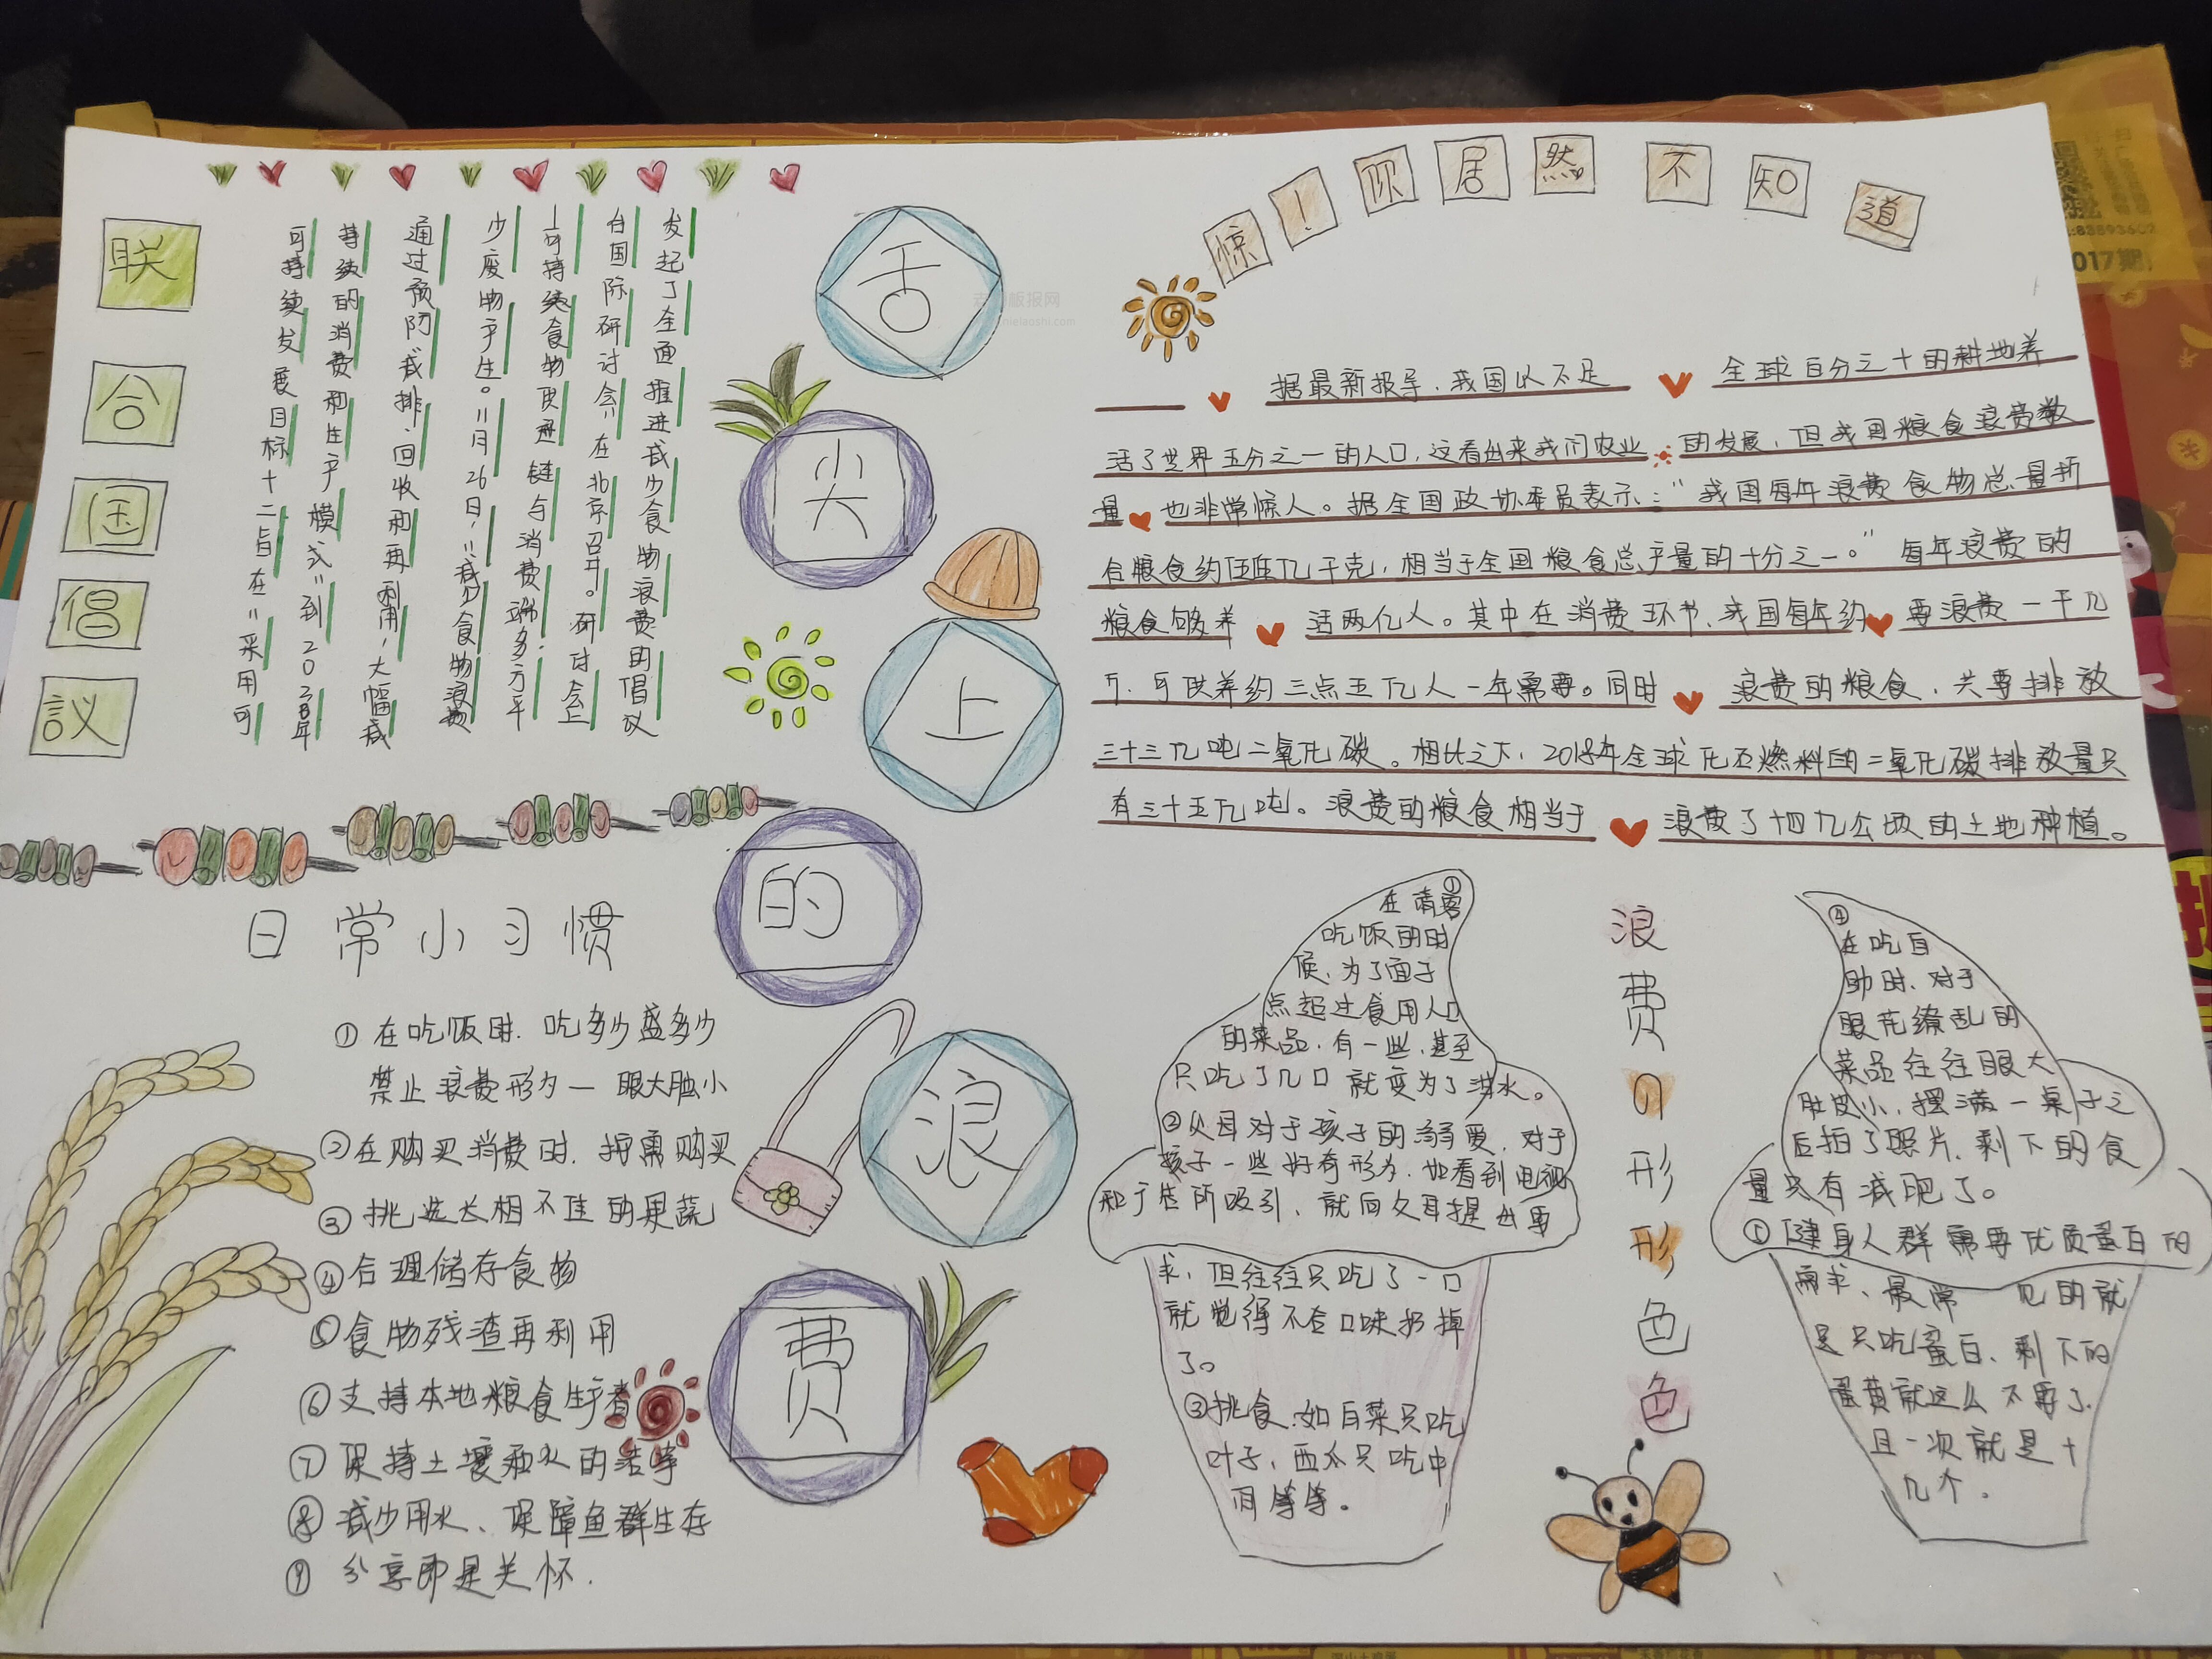 联
合
国
倡
议
可持续发展目标十二旨在"采用可
持续的消费和生产模式"到2030年
通过预防减排、回收和再利用,大幅减
少废物产生。11月26日,"减少食物浪费
—可持续食物供应链与消费端多方平
台国际研讨会"在北京召开。研讨会上
发起了全面推进减少食物浪费的倡议
舌
尖
上
的
浪
费
惊!你居然不知道
据最新报导,我国以不足 全球百分之十的耕地养
活了世界五分之一的人口,这看出来我们农业 的发展,但我国粮食浪费数
量 也非常惊人。据全国政协委员表示:"我国每年浪费食物总量折
合粮食约伍佰亿千克,相当于全国粮食总产量的十分之一。"每年浪费的
粮食够养 活两亿人。其中在消费环节,我国每年约 要浪费一千亿
斤,可供养约三点五亿人一年需要。同时 浪费的粮食,共要排放
三十三亿吨二氧化碳。相比之下,2018年全球化石燃料的二氧化碳排放量只
有三十五亿吨。浪费的粮食相当于 浪费了十四亿公顷的土地种植。
日常小习惯
①在吃饭时,吃多少盛多少
禁止浪费形为— 眼大肚小
②在购买消费时,按需购买
③挑选长相不佳的果蔬
④合理储存食物
⑤食物残渣再利用
⑥支持本地粮食生产者
⑦保持土壤和水的洁净
⑧减少用水、保障鱼群生存
⑨分享即是关怀.
浪
费
的
形
形
色
色
①
在请客
吃饭的时
候,为了面子
点超过食用人口
的菜品,有一些,甚至
只吃了几口 就变为了泔水。
②父母对于孩子的溺爱,对于
孩子一些好奇形为,如看到电视
和广告所吸引,就向父母提出要
求,但往往只吃了一口
就觉得不合口味扔掉
了。
③挑食,如白菜只吃
叶子,西瓜只吃中
间等等。
④
在吃自
助时,对于
眼花缭乱的
菜品往往眼大
肚皮小,摆满一桌子之
后拍了照片,剩下的食
量只有减肥了。
健身人群需要优质蛋白的
需求,最常 见的就
是只吃蛋白,剩下的
蛋黄就这么不要了,
且一次就是十
几个.